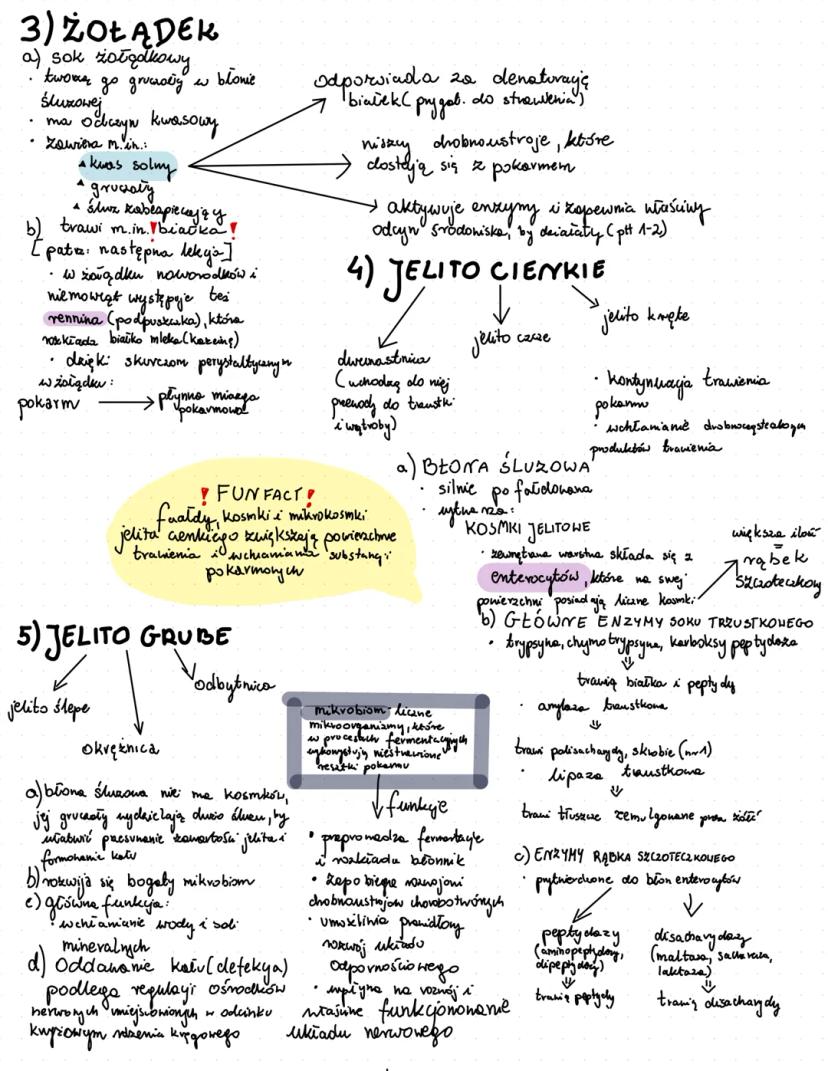 3) ŻOŁĄDEK
a) sok żołądkowy
• tworzą go gruczoły w błonie
śluzowej
• ma odczyn kwasowy
• zawiera m.in.:
▲ kwas solny
▲ gruczoły
▲ śluz zabezpieczający
odpowiada za denaturację
białek (przygot. do strawienia)
niszczy drobnoustroje, które
dostają się z pokarmem
aktywuje enzymy i zapewnia właściwy
odczyn środowiska, by działały (pH 1-2)
b) trawi m.in. ! białka !
[patrz: następna lekcja]
• w żołądku noworodków i
niemowląt występuje też
rennina (podpuszczka), która
rozkłada białko mleka (kazeinę)
• dzięki skurczom perystaltycznym
w żołądku:
pokarm → płynna miazga
pokarmowa
4) JELITO CIENKIE
dwunastnica
(uchodzą do niej
przewody do trzustki
i wątroby)
jelito czcze
jelito kręte
• kontynuacja trawienia
pokarmu
• wchłanianie drobnocząsteczkowych
produktów trawienia
a) BŁONA ŚLUZOWA
• silnie pofałdowana
• wytwarza:
KOSMKI JELITOWE
• zewnętrzna warstwa składa się z
enterocytów, które na swej
powierzchni posiadają liczne kosmki
większa ilość
=
rąbek
szczoteczkowy
! FUNFACT !
fałdy, kosmki i mikrokosmki
jelita cienkiego zwiększają powierzchnię
trawienia i wchłaniania substancji
pokarmowych
b) GŁÓWNE ENZYMY SOKU TRZUSTKOWEGO
• trypsyna, chymotrypsyna, karboksypeptydaza
⇓
trawią białka i peptydy
• amylaza trzustkowa
⇓
trawi polisacharydy, skrobię (nr 1)
• lipaza trzustkowa
⇓
trawi tłuszcze zemulgowane przez żółć
c) ENZYMY RĄBKA SZCZOTECZKOWEGO
• przytwierdzone do błon enterocytów
peptydazy
(aminopeptydazy,
dipeptydazy)
⇓
trawią peptydy
disacharydazy
(maltaza, sacharaza,
laktaza)
⇓
trawią disacharydy
5) JELITO GRUBE
jelito ślepe
okrężnica
odbytnica
a) błona śluzowa nie ma kosmków,
jej gruczoły wydzielają dużo śluzu, by
ułatwić przesuwanie zawartości jelita i
formowanie kału
b) rozwija się bogaty mikrobiom
c) główna funkcja:
• wchłanianie wody i soli
mineralnych
d) Oddawanie kału (defekacja)
podlega regulacji ośrodków
nerwowych umiejscowionych w odcinku
krzyżowym rdzenia kręgowego
mikrobiom - liczne
mikroorganizmy, które
w procesach fermentacyjnych
wykorzystują niestrawione
resztki pokarmu
funkcje
• przeprowadza fermentację
i rozkłada błonnik
• zapobiega rozwojowi
drobnoustrojów chorobotwórczych
• umożliwia prawidłowy
rozwój układu
odpornościowego
• wpływa na rozwój i
właściwe funkcjonowanie
układu nerwowego